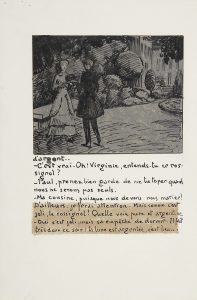 d'argent...
- C'est vrai. Oh! Virginie, entends-tu ce ros-
signol?
- Paul, prenez bien garde de me tutoyer quand
nous ne serons pas seuls.
- Ma cousine, puisque nous devons nous marier!
D'ailleurs, je ferai attention. Mais comme c'est
joli, le rossignol! Quelle voix pure et argentine
- Oui c'est joli, mais ça empêche de dormir. Il fait
très doux ce soir: la lune est argentée, c'est beau...